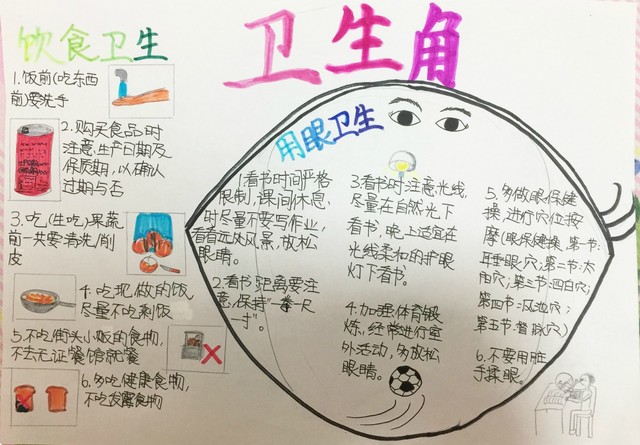 卫生角
饮食卫生
1.饭前(吃东西
前)要洗手
2.购买食品时
注意生产日期及
保质期,以确认
过期与否
3.吃(生吃)果蔬
前一共要清洗/削
皮
4.吃现做的饭
尽量不吃剩饭
5.不吃街头小贩的食物,
不去无证餐馆就餐
6.多吃健康食物,
不吃发霉食物
用眼卫生
1.看书时间严格
限制,课间休息,
时尽量不要写作业,
看看远处风景,放松
眼睛。
2.看书距离要注
意,保持“一拳一尺
一寸”。
3.看书时注意光线,
尽量在自然光下
看书,晚上适宜在
光线柔和的护眼
灯下看书。
4.加强体育锻
炼,经常进行室
外活动,多放松
眼睛。
5.多做眼保健
操,进行穴位按
摩(眼保健操,第一节:
睛明穴;第二节:太
阳穴;第三节:四白穴;
第四节:风池穴;
第五节:
6.不要用脏
手揉眼。